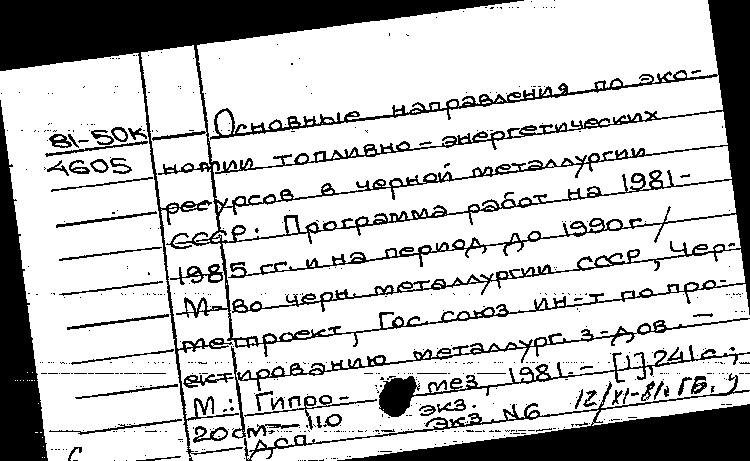 81-50к
4605
Основные направления по эко-
номии топливно-энергетических
ресурсов в черной металлургии
СССР: Программа работ на 1981-
1985 гг. и на период до 1990г. /
М-во черн. металлургии СССР, Чер-
метпроект, Гос. союз ин-т по про-
ектированию металлург. з-дов. —
М.: Гипро- мез, 1981. - [1], 241с.;
20см. — 110 экз.
Дсп. Экз. №6 12/XI-81г. ГБ.